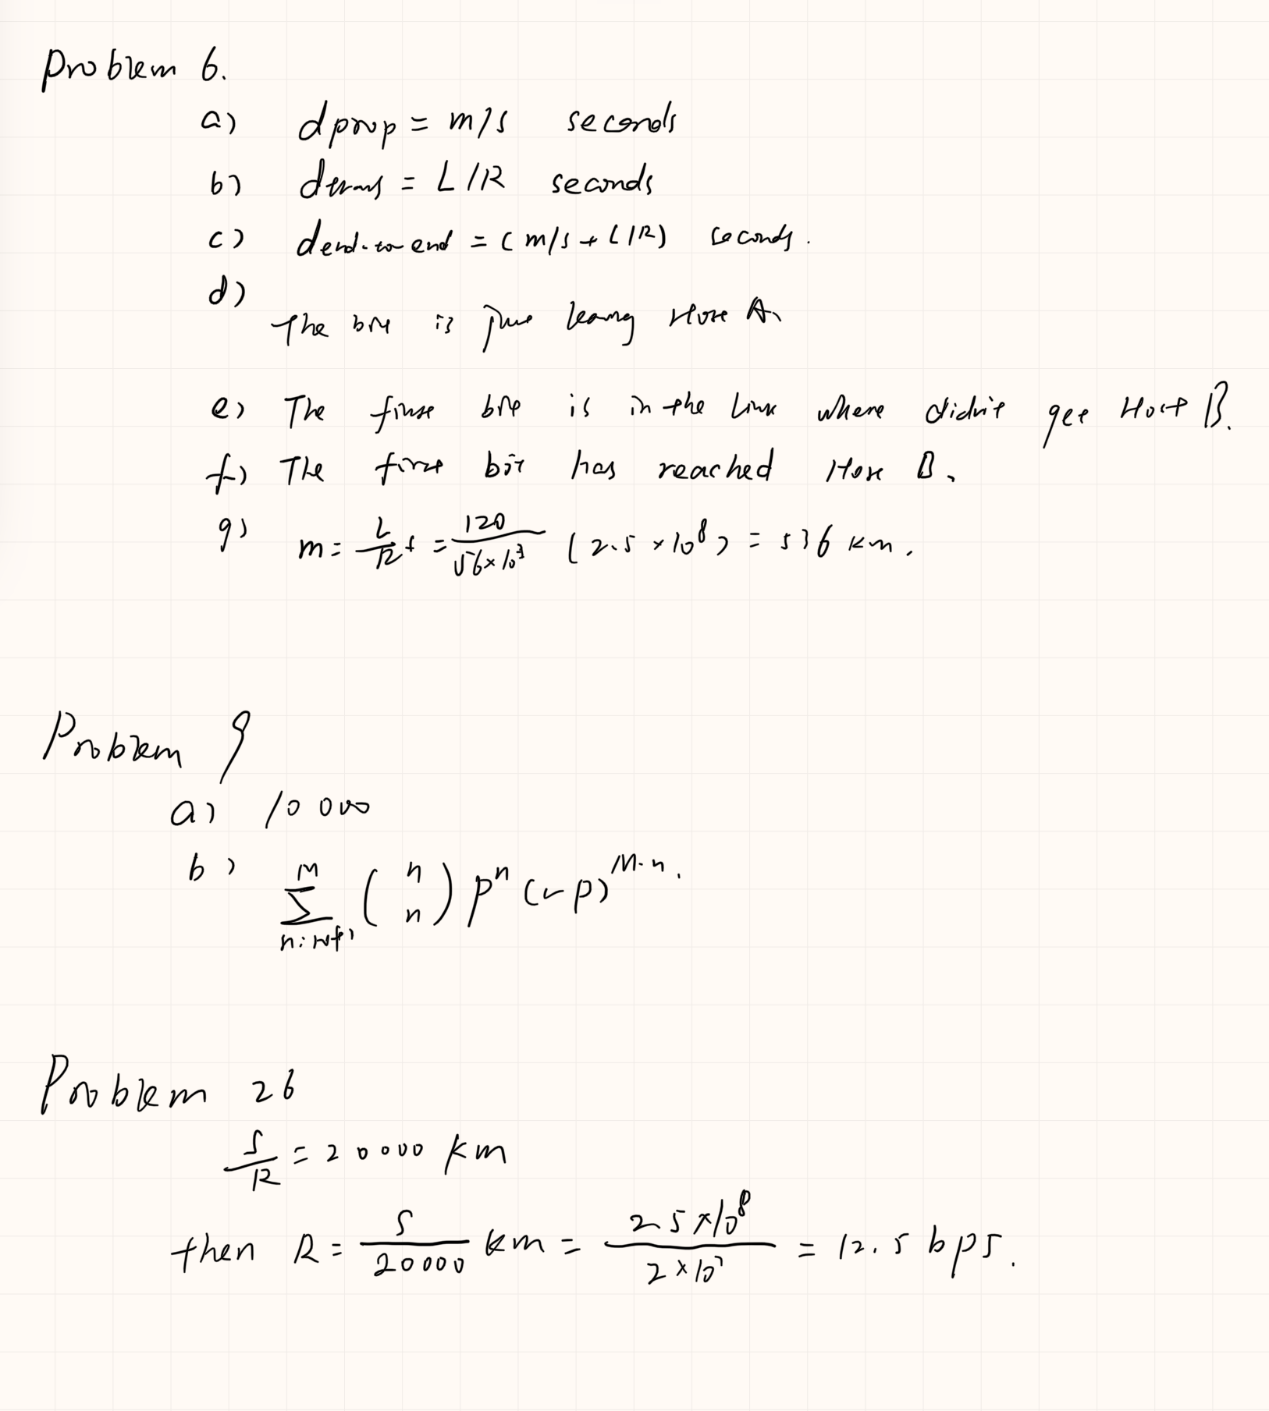 Problem 6.
a) dprop = m/s seconds
b) dtrans = L/R seconds
c) dend-to end = (m/s + L/R) seconds.
d)
The bit is just leaving Host A.
e) The first bit is in the link where didn't get Host B.
f) The first bit has reached Host B.
g) m = L/R s = 120/56×10³ (2.5 ×10⁸) = 536 km.
Problem 9
a) 10 000
b) M∑n=N+1 (n n) pⁿ (1-p)ᴹ⁻ⁿ.
Problem 26
S/R = 20000 km
then R = S/20000 km = 2.5×10⁸/2×10⁷ = 12.5 bps.